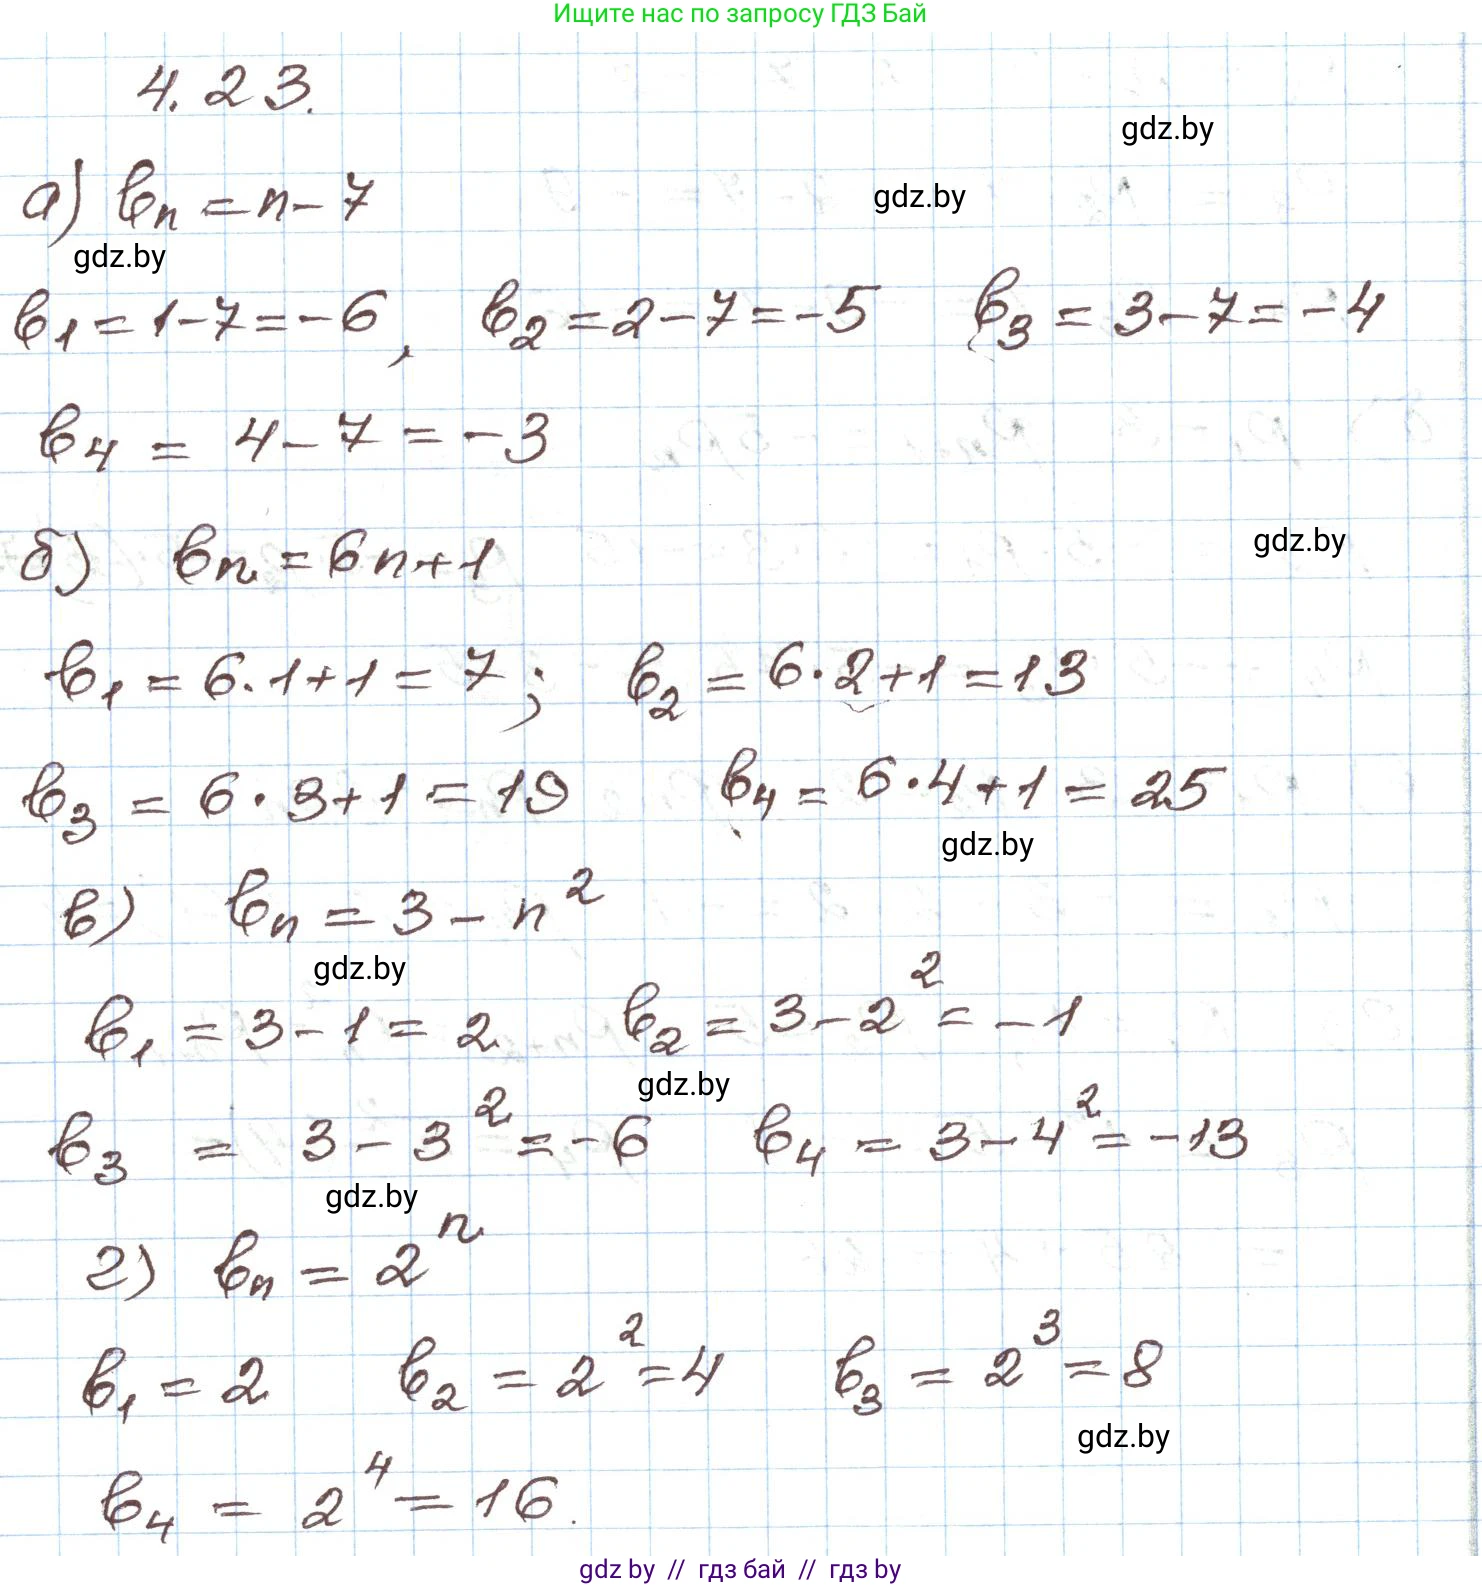 Ищите нас по запросу ГДЗ Бай
4.23.
gdz.by
а) bₙ = n - 7
gdz.by
gdz.by
b₁ = 1 - 7 = -6, b₂ = 2 - 7 = -5 b₃ = 3 - 7 = -4
b₄ = 4 - 7 = -3
б) bₙ = 6n + 1
gdz.by
b₁ = 6·1 + 1 = 7; b₂ = 6·2 + 1 = 13
b₃ = 6·3 + 1 = 19 b₄ = 6·4 + 1 = 25
gdz.by
в) bₙ = 3 - n²
gdz.by
b₁ = 3 - 1 = 2 b₂ = 3 - 2² = -1
gdz.by
b₃ = 3 - 3² = -6 b₄ = 3 - 4² = -13
gdz.by
г) bₙ = 2ⁿ
b₁ = 2 b₂ = 2² = 4 b₃ = 2³ = 8
gdz.by
b₄ = 2⁴ = 16.
gdz.by // гдз бай // гдз by